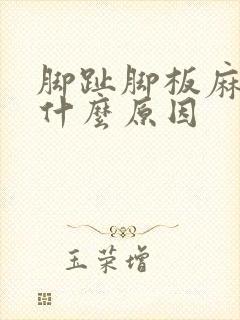 脚趾脚板麻
什麼原因
玉荣增